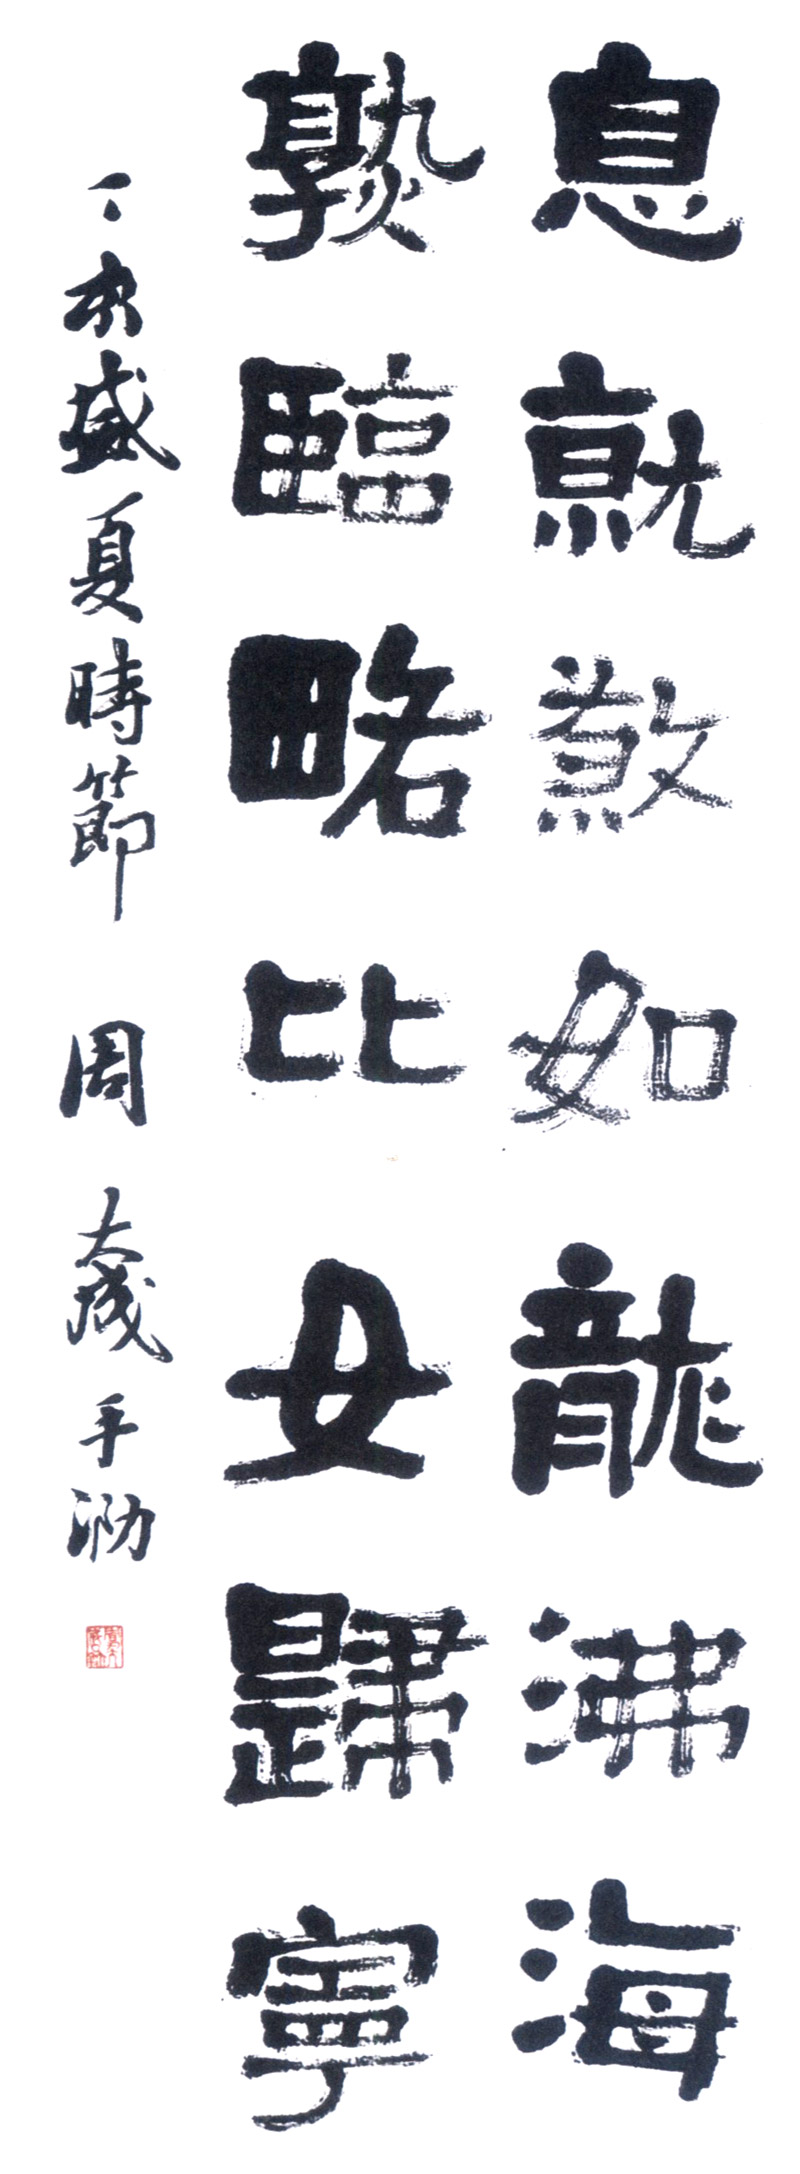 息就煞如龍沸海
熟臨略比女歸寧
丁亥盛夏時節 周大成手泐